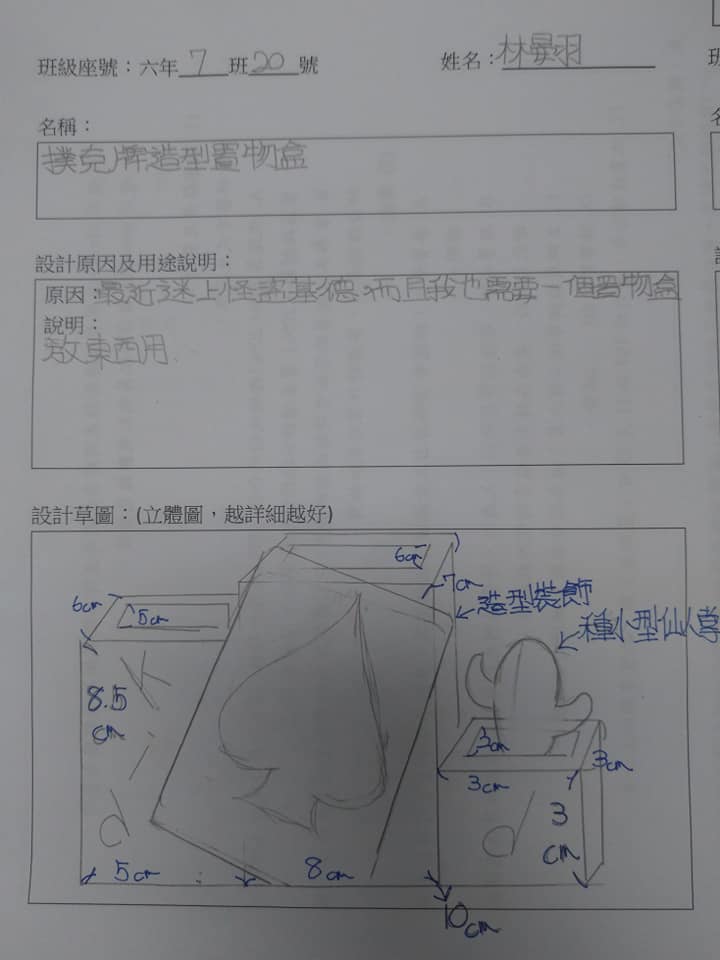 班級座號：六年 7 班 20 號
姓名：林晏羽
名稱：
撲克牌造型置物盒
設計原因及用途說明：
原因：最近迷上怪盜基德，而且我也需要一個置物盒
說明：
放東西用
設計草圖：(立體圖，越詳細越好)
6cm
7cm
6cm
5cm
造型裝飾
種小型仙人掌
8.5
cm
K
i
d
3cm
3cm
3cm
d
3
cm
5cm
8cm
10cm